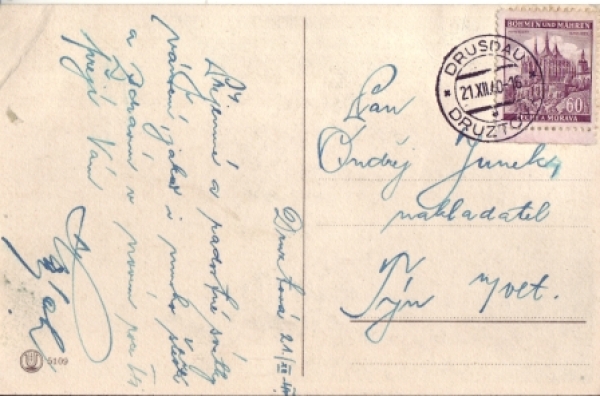 Příjemné a radostné svátky
vánoční jakož i mnoho štěstí
a zdraví v novém roce 41
přejí Vám
Družtová 21/XII 40
BÖHMEN UND MÄHREN
60
ČECHY A MORAVA
DRUSDAU
21.XII.40-16
DRUZTO
Pan
Ondřej Junek,
nakladatel
Týn n/Vlt.
5109